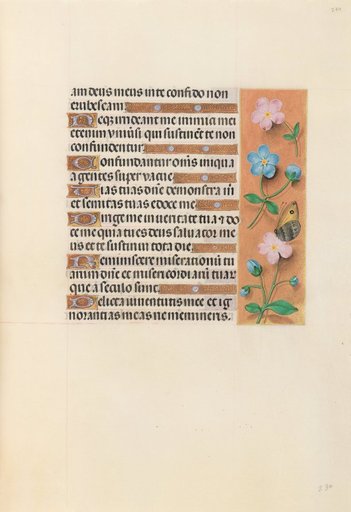 am deus meus in te confido non
erubescam
Neq; irrideant me inimici mei
etenim vniu̅si qui sustine̅t te non
confundentur
Confundantur om̅s iniqua
agentes superuacue
Uias tuas dn̅e demonstra m̅
et semitas tuas edoce me
Dirige me in ueritate tua ⁊ do
ce me quia tu es deus saluator me
us et te sustinui tota die
Reminiscere miserationu̅ tu
arum dn̅e et misericordiaru̅ tuar
que a seculo sunt
Delicta iuuentutis mee et ig
norantias meas ne memineris.
230